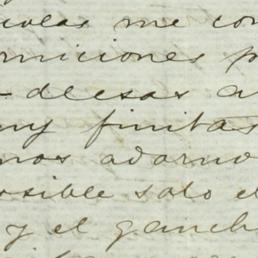 me con
miciones p
deesas a
ny finitas
nos adorno
osible solo el
y el ganch